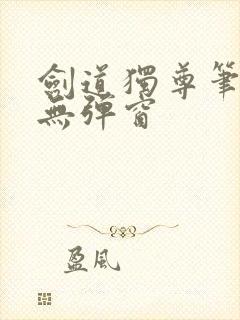 劍道獨尊筆
無彈窗
盈風